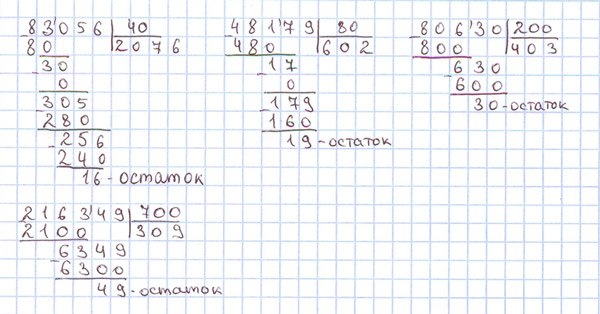 83056 | 40
80 | 2076
30
0
305
280
256
240
16 - остаток
48179 | 80
480 | 602
17
0
179
160
19 - остаток
80630 | 200
800 | 403
630
600
30 - остаток
216349 | 700
2100 | 309
6349
6300
49 - остаток